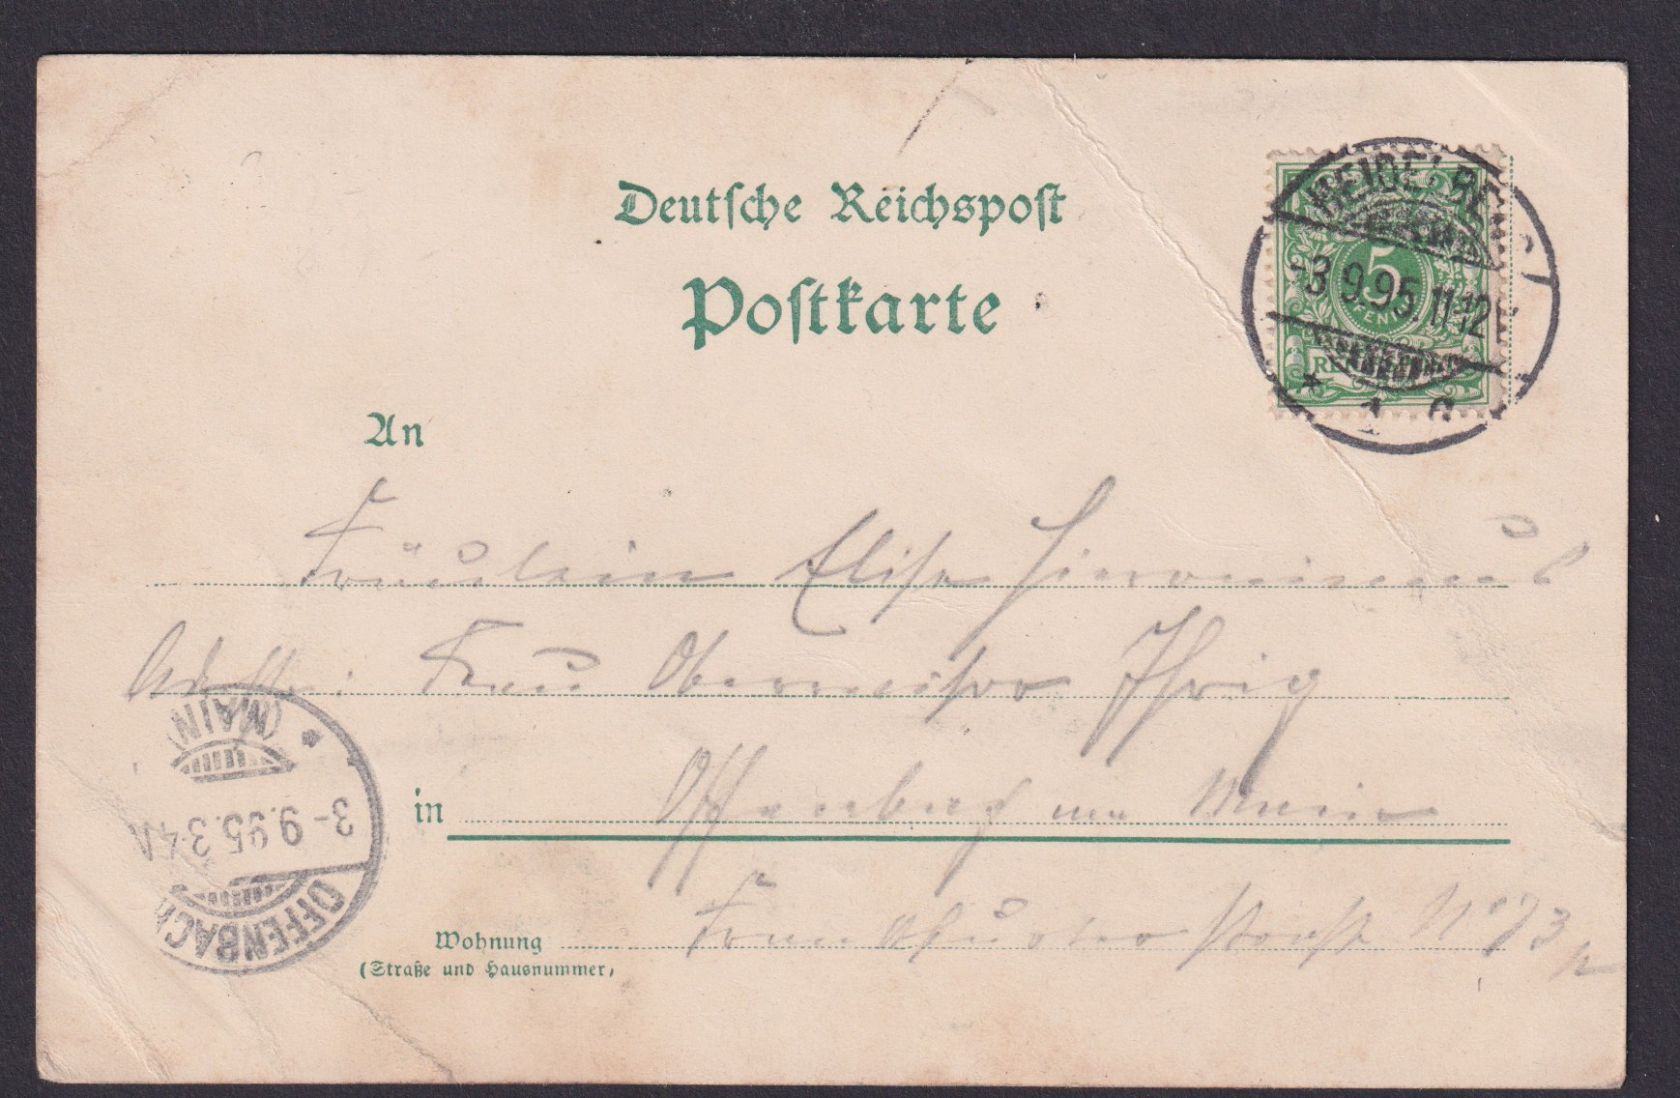 Deutsche Reichspost
Postkarte
HEIDELBERG
-3.9.95.11-12V
5
PFENNIG
* 1
An
Fräulein Elise Hieronimus
Adr. Frau Obermeister Ihrig
in Offenbach am Main
Wohnung Frankfurter Straße No 73
(Straße und Hausnummer)
OFFENBACH
3-9.95.3-4
(MAIN)
*